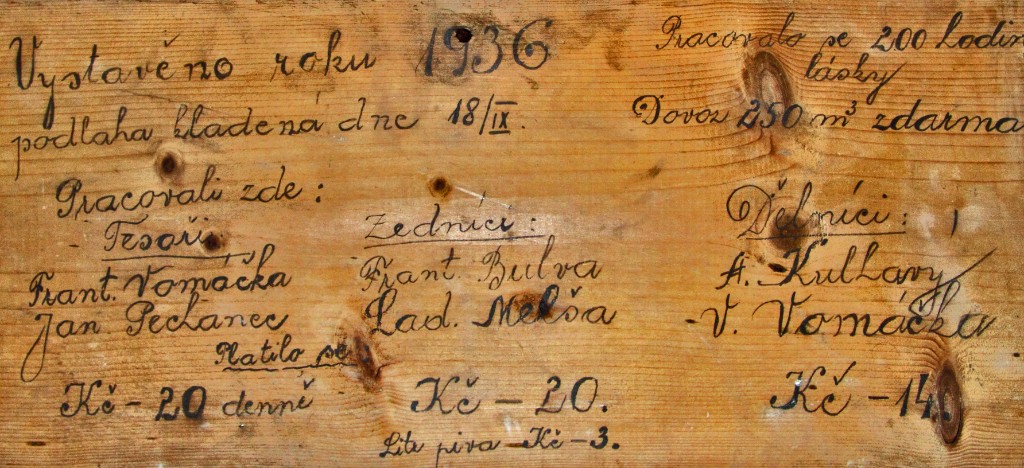 Vystavěno roku 1936
podlaha kladená dne 18/IX.
Pracovalo se 200 hodin
lásky
Dovoz 250 m³ zdarma
Pracovali zde:
Tesaři:
Frant. Vomáčka
Jan Pechanec
Zedníci:
Frant. Bulva
Lad. Melša
Dělníci:
A. Kulhavý
V. Vomáčka
Platilo se
Kč - 20 denně
Kč - 20.
Kč - 14.
Litr piva Kč - 3.